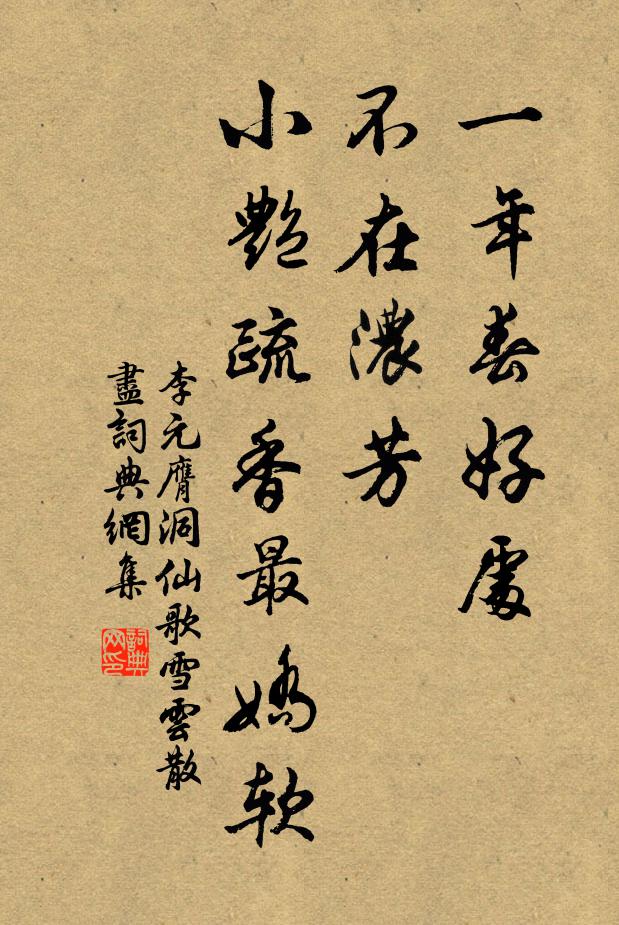 一年春好處
不在濃芳
小艷疏香最嬌軟
李元膺洞仙歌雪雲散
盡詞典網集
詞典网印